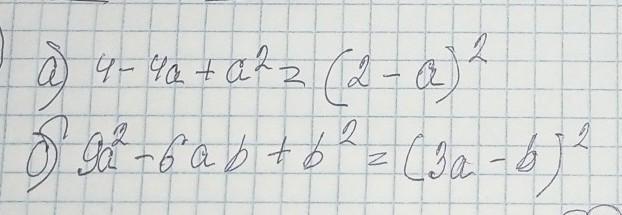 а) 4 - 4a + a² = (2 - a)²
б) 9a² - 6ab + b² = (3a - b)²